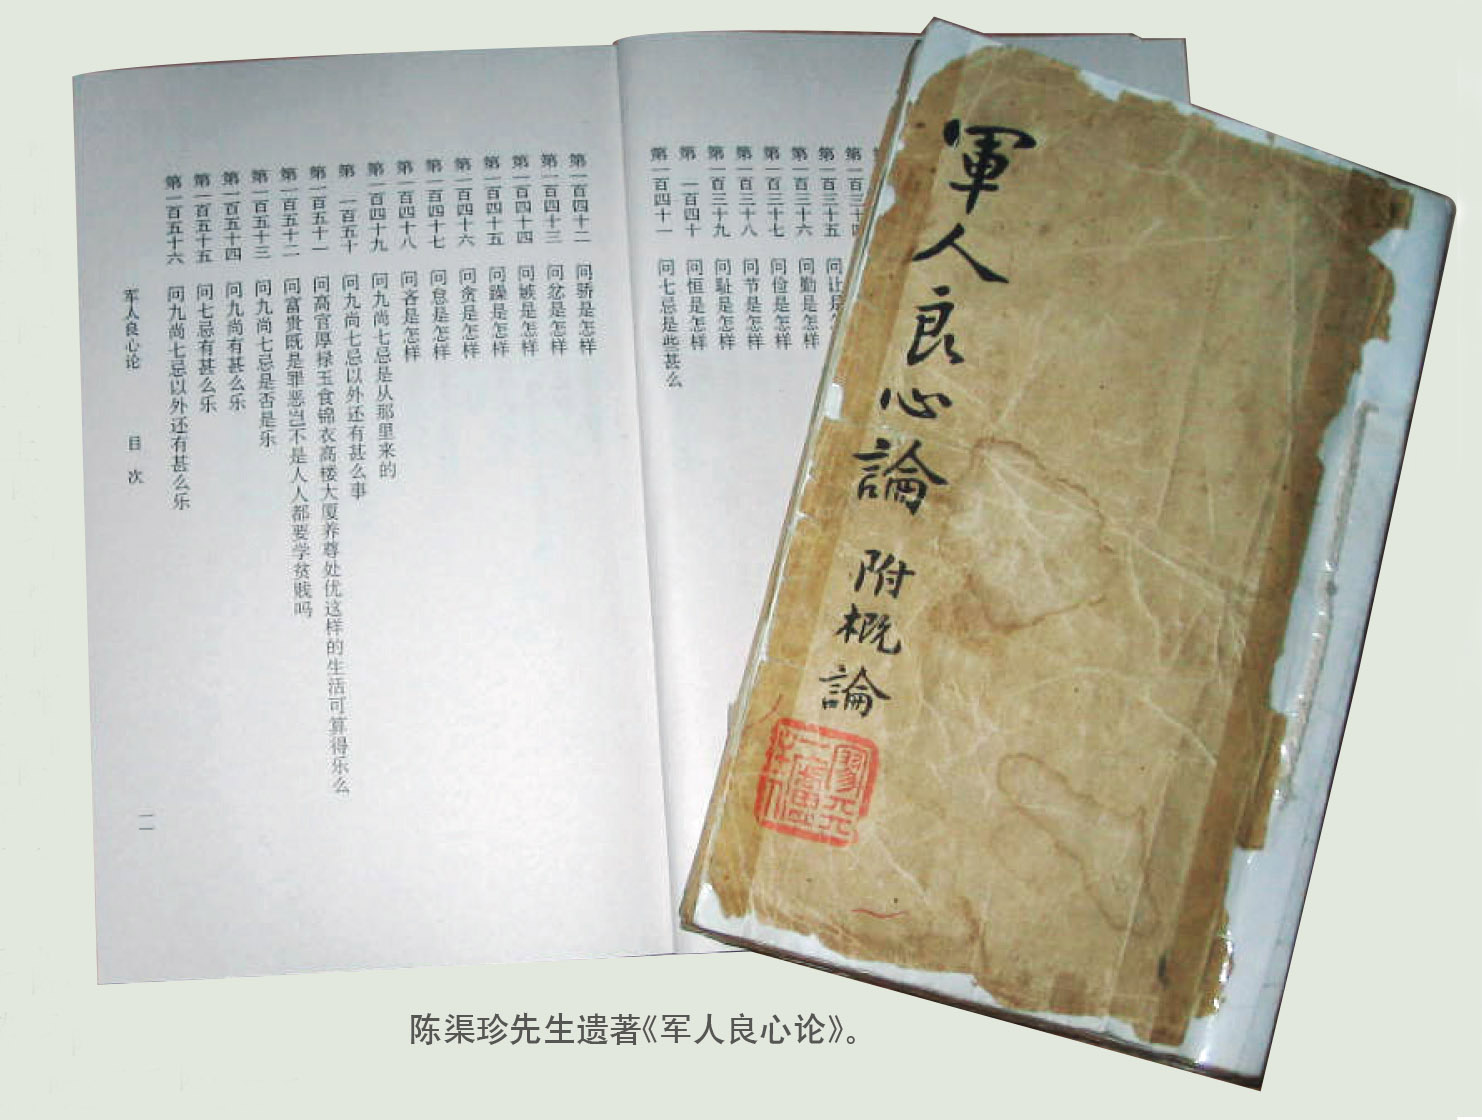 軍人良心論 附概論
第一百三十四
第一百三十五 问让是怎
第一百三十六 问勤是怎样
第一百三十七 问俭是怎样
第一百三十八 问节是怎样
第一百三十九 问耻是怎样
第一百四十 问恒是怎样
第一百四十一 问七忌是些甚么
第一百四十二 问骄是怎样
第一百四十三 问忿是怎样
第一百四十四 问嫉是怎样
第一百四十五 问躁是怎样
第一百四十六 问贪是怎样
第一百四十七 问怠是怎样
第一百四十八 问吝是怎样
第一百四十九 问九尚七忌是从那里来的
第一百五十 问九尚七忌以外还有甚么事
第一百五十一 问高官厚禄玉食锦衣高楼大厦养尊处优这样的生活可算得乐么
第一百五十二 问富贵既是罪恶岂不是人人都要学贫贱吗
第一百五十三 问九尚七忌是否是乐
第一百五十四 问九尚有甚么乐
第一百五十五 问七忌有甚么乐
第一百五十六 问九尚七忌以外还有甚么乐
军人良心论 目次 一一
陈渠珍先生遗著《军人良心论》。